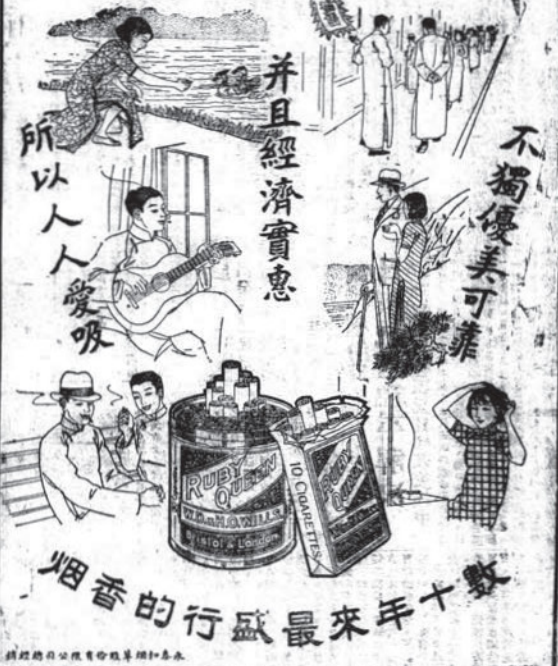 不獨優美可靠
并且經濟實惠
所以人人愛吸
RUBY
QUEEN
W.D.&H.O.WILLS
Bristol & London
10 CIGARETTES
RUBY
QUEEN
數十年來最盛行的香烟
永泰和烟草股份有限公司總經銷